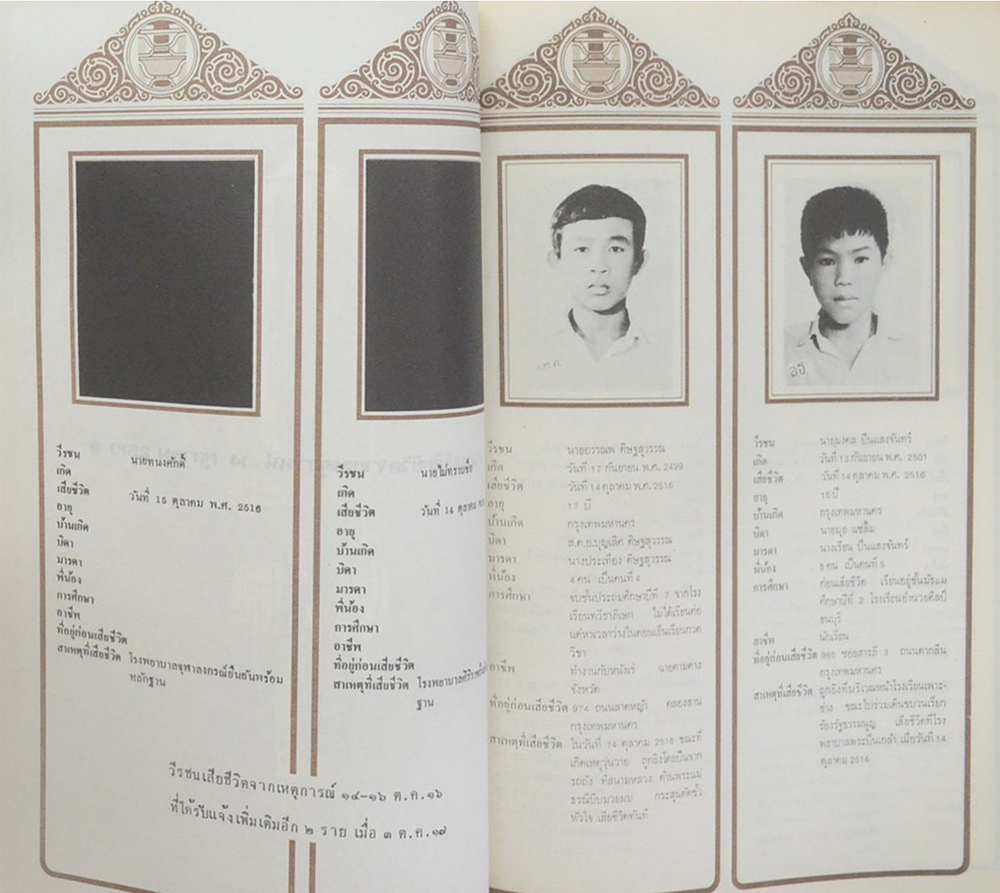 วีรชน นายทนงศักดิ์
เกิด
เสียชีวิต วันที่ 15 ตุลาคม พ.ศ. 2516
อายุ
บ้านเกิด
บิดา
มารดา
พี่น้อง
การศึกษา
อาชีพ
ที่อยู่ก่อนเสียชีวิต
สาเหตุที่เสียชีวิต โรงพยาบาลจุฬาลงกรณ์ยืนยันพร้อม
หลักฐาน
วีรชน นายไม่ทราบชื่อ
เกิด
เสียชีวิต วันที่ 14 ตุลาคม
อายุ
บ้านเกิด
บิดา
มารดา
พี่น้อง
การศึกษา
อาชีพ
ที่อยู่ก่อนเสียชีวิต
สาเหตุที่เสียชีวิต โรงพยาบาลศิริราช
ฐาน
วีรชนเสียชีวิตจากเหตุการณ์ ๑๔-๑๖ ต.ค.๑๖
ที่ได้รับแจ้งเพิ่มเติมอีก ๒ ราย เมื่อ ๓ ต.ค.๑๗
วีรชน นายอรรณพ ดิษฐสุวรรณ
เกิด วันที่ 17 กันยายน พ.ศ. 2499
เสียชีวิต วันที่ 14 ตุลาคม พ.ศ. 2516
อายุ 17 ปี
บ้านเกิด กรุงเทพมหานคร
บิดา ส.ต.อ.บุญเลิศ ดิษฐสุวรรณ
มารดา นางประเทือง ดิษฐสุวรรณ
พี่น้อง 4 คน เป็นคนที่ 4
การศึกษา จบชั้นประถมศึกษาปีที่ 7 จากโรง
เรียนทวีธาภิเษก ไม่ได้เรียนต่อ
แต่หาเวลาว่างในตอนเย็นเรียนกวด
วิชา
อาชีพ ทำงานกับหนังเร่ ฉายตามต่าง
จังหวัด
ที่อยู่ก่อนเสียชีวิต 974 ถนนลาดหญ้า คลองสาน
กรุงเทพมหานคร
สาเหตุที่เสียชีวิต ในวันที่ 14 ตุลาคม 2516 ขณะที่
เกิดเหตุวุ่นวาย ถูกยิงโดยปืนจาก
รถถัง ที่สนามหลวง ด้านพระแม่
ธรณีบีบมวยผม กระสุนตัดขั้ว
หัวใจ เสียชีวิตทันที
อ.ปี.
วีรชน นายมงคล ปิ่นแสงจันทร์
เกิด วันที่ 13 กันยายน พ.ศ. 2501
เสียชีวิต วันที่ 14 ตุลาคม พ.ศ. 2516
อายุ 15 ปี
บ้านเกิด กรุงเทพมหานคร
บิดา นายมุย แซ่ลิ้ม
มารดา นางเรียน ปิ่นแสงจันทร์
พี่น้อง 5 คน เป็นคนที่ 5
การศึกษา ก่อนเสียชีวิต เรียนอยู่ชั้นมัธยม
ศึกษาปีที่ 2 โรงเรียนอำนวยศิลป์
ธนบุรี
อาชีพ นักเรียน
ที่อยู่ก่อนเสียชีวิต 985 ซอยสารภี 3 ถนนตากสิน
กรุงเทพมหานคร
สาเหตุที่เสียชีวิต ถูกยิงที่บริเวณหน้าโรงเรียนเพาะ-
ช่าง ขณะไปร่วมเดินขบวนเรียก
ร้องรัฐธรรมนูญ เสียชีวิตที่โรง
พยาบาลพระปิ่นเกล้า เมื่อวันที่ 14
ตุลาคม 2516